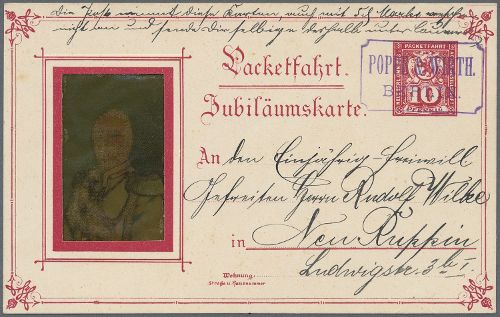 Die Post nimmt diese Karten auch mit 5 Marke
nicht an und sende dieselbige deshalb unter
Packetfahrt.
Jubiläumskarte.
PACKETFAHRT
10
PFENNIG
POPP
RTH.
B
An den Einjährig-Freiwill
Gefreiten Herrn Rudolf Wilke
in Neu Ruppin
Ludwigstr. 3
Wohnung:
Straße u. Hausnummer